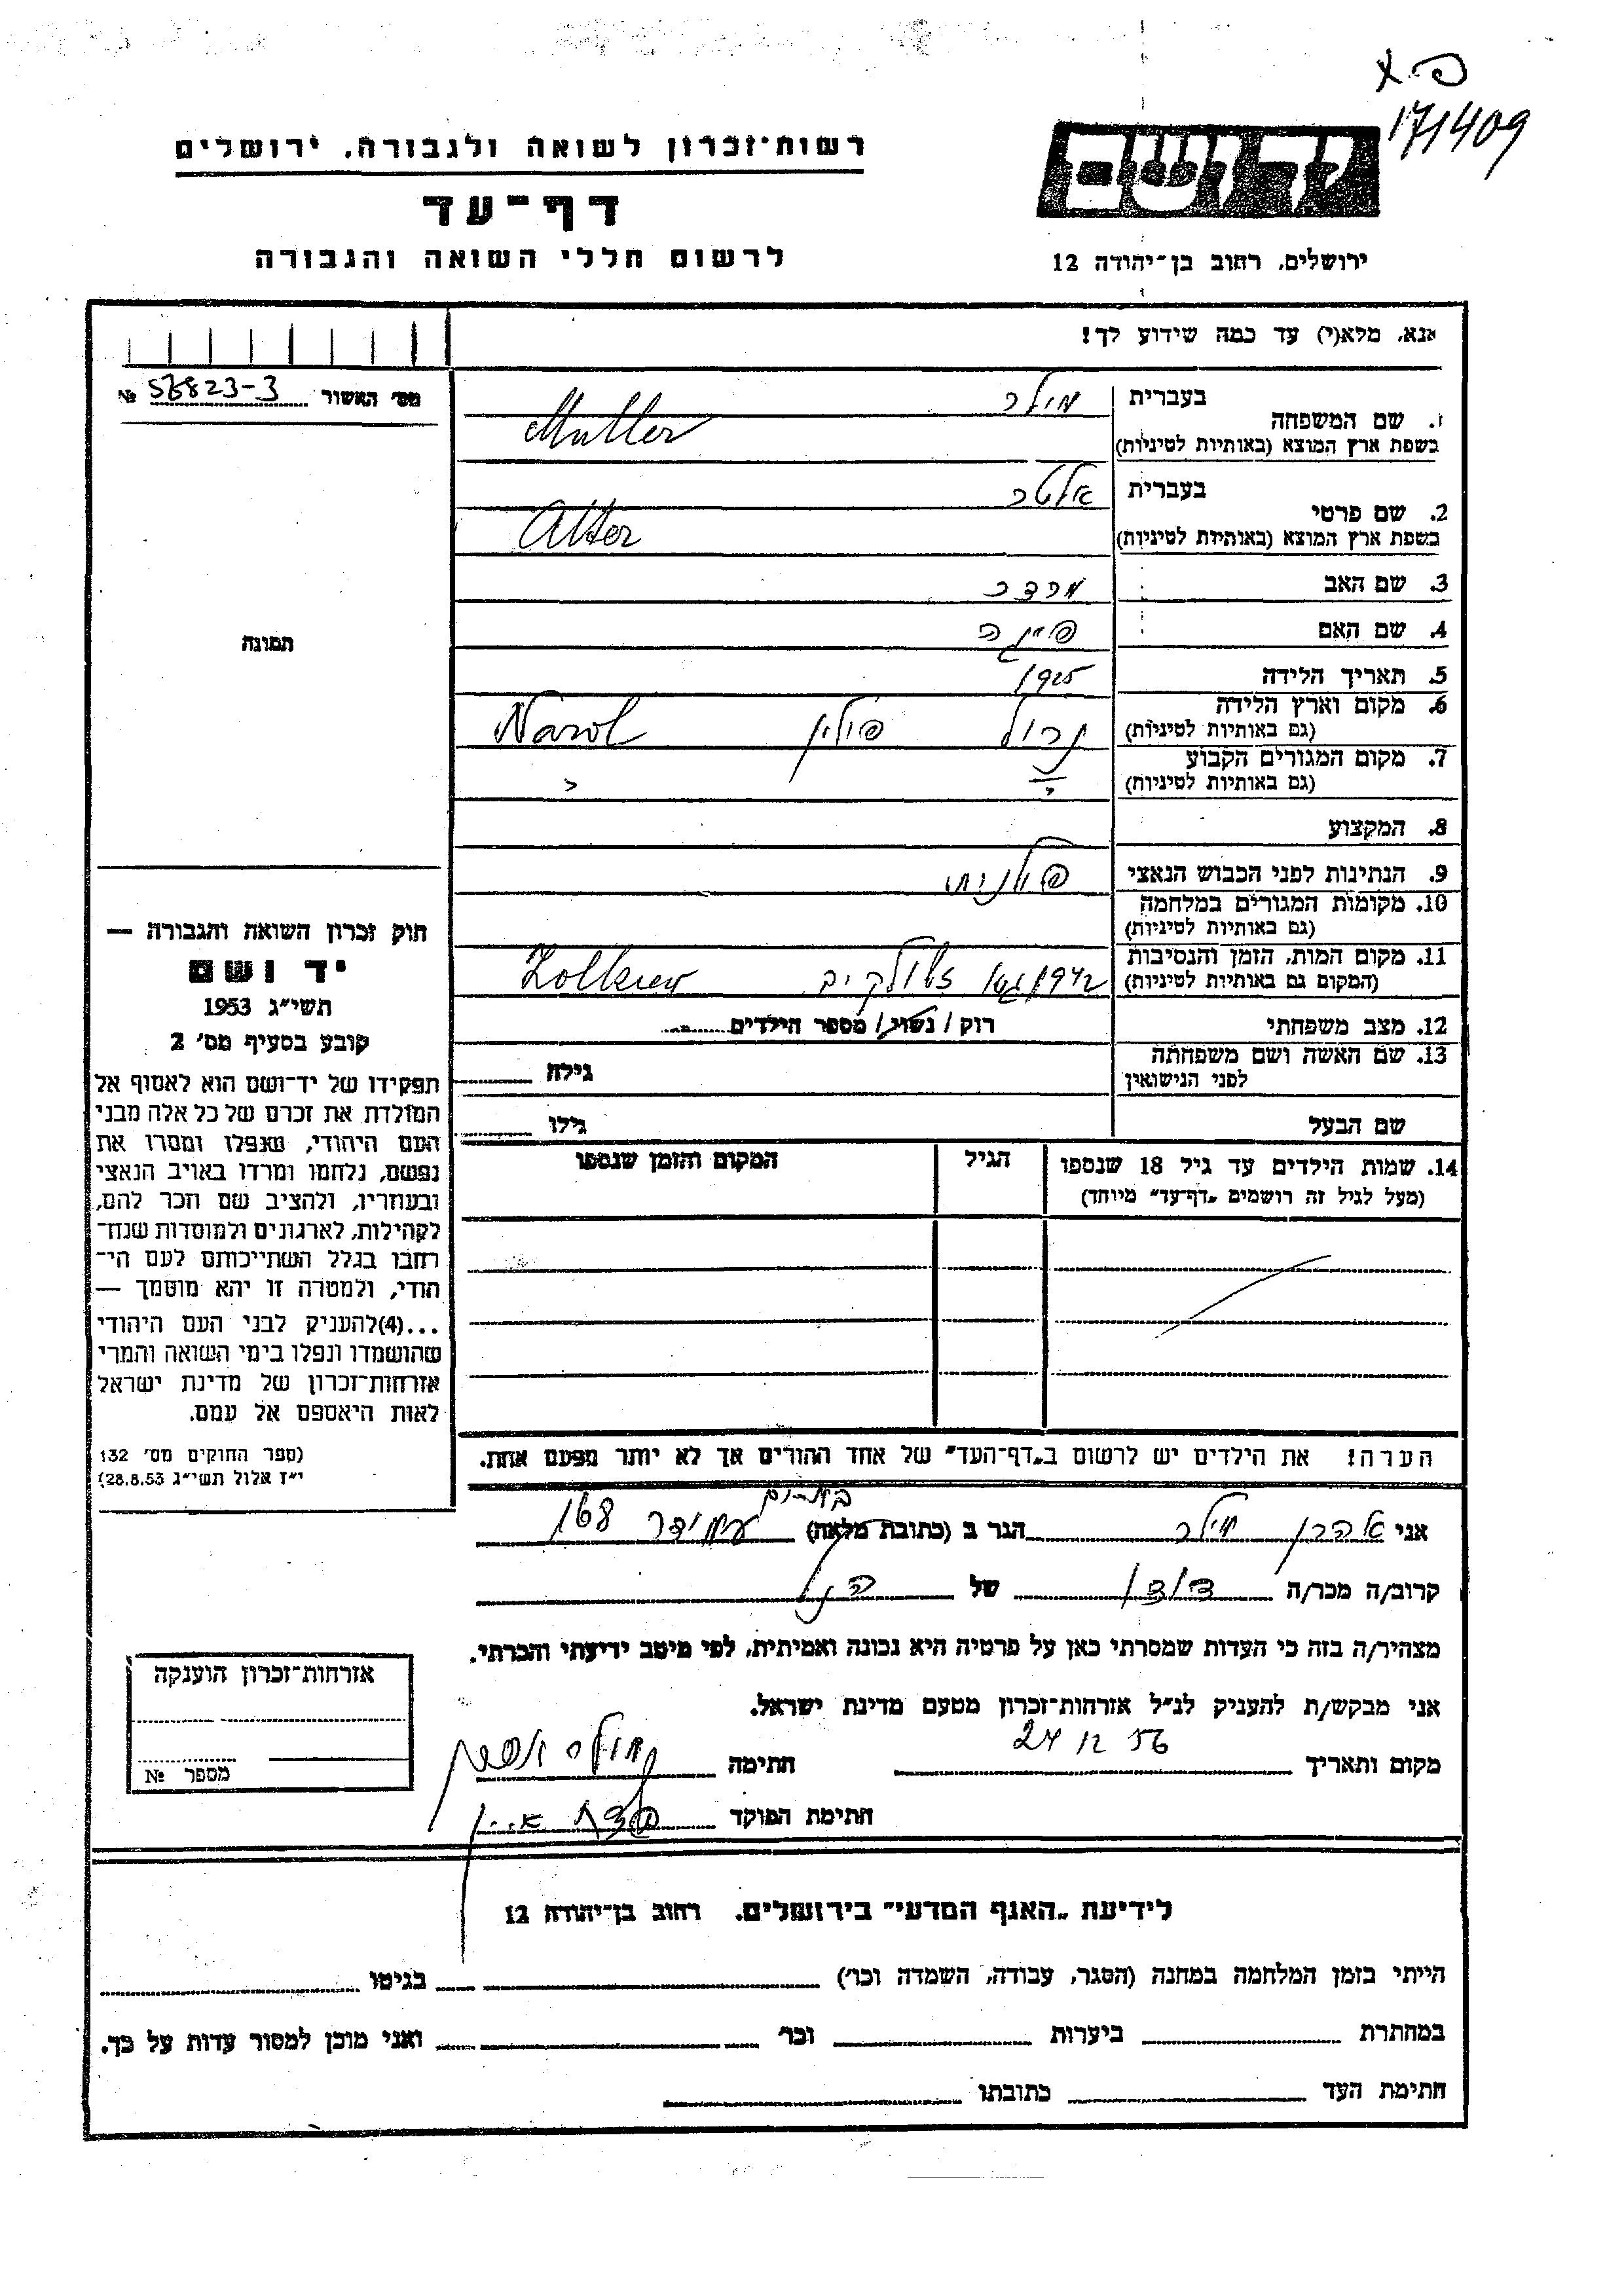 פ.א
171409
רשות־זכרון לשואה ולגבורה, ירושלים
יד ושם
דף־עד
לרשום חללי השואה והגבורה
ירושלים, רחוב בן־יהודה 12
אנא, מלא(י) עד כמה שידוע לך!
מס' האשור 56823-3 №
1. שם המשפחה בעברית מילר
בשפת ארץ המוצא (באותיות לטיניות) Muller
2. שם פרטי בעברית אלטר
בשפת ארץ המוצא (באותיות לטיניות) Alter
3. שם האב מרדכי
4. שם האם פייגה
5. תאריך הלידה 1925
6. מקום וארץ הלידה נרול פולין Narol
(גם באותיות לטיניות)
7. מקום המגורים הקבוע
(גם באותיות לטיניות)
8. המקצוע
9. הנתינות לפני הכבוש הנאצי פולנית
10. מקומות המגורים במלחמה
(גם באותיות לטיניות)
11. מקום המות, הזמן והנסיבות
(המקום גם באותיות לטיניות) 1942 גטו זולקיב Zolkiew
12. מצב משפחתי רוק / נשוי / מספר הילדים
13. שם האשה ושם משפחתה
לפני הנישואין גילה
שם הבעל גילו
14. שמות הילדים עד גיל 18 שנספו הגיל המקום והזמן שנספו
(מעל לגיל זה רושמים „דף־עד” מיוחד)
תמונה
חוק זכרון השואה והגבורה —
יד ושם
תשי״ג 1953
קובע בסעיף מס' 2
תפקידו של יד־ושם הוא לאסוף אל
המולדת את זכרם של כל אלה מבני
העם היהודי, שנפלו ומסרו את
נפשם, נלחמו ומרדו באויב הנאצי
ובעוזריו, ולהציב שם וזכר להם,
לקהילות, לארגונים ולמוסדות שנח־
רבו בגלל השתייכותם לעם הי־
הודי, ולמטרה זו יהא מוסמך —
...(4)להעניק לבני העם היהודי
שהושמדו ונפלו בימי השואה והמרי
אזרחות־זכרון של מדינת ישראל
לאות היאספם אל עמם.
(ספר החוקים מס' 132
י״ז אלול תשי״ג 28.8.53)
הערה! את הילדים יש לרשום ב„דף־העד” של אחד ההורים אך לא יותר מפעם אחת.
אני אהרן מילר הגר ב (כתובת מלאה) עמידר 168
קרוב/ה מכר/ה דודו של הנ״ל
מצהיר/ה בזה כי העדות שמסרתי כאן על פרטיה היא נכונה ואמיתית, לפי מיטב ידיעתי והכרתי.
אני מבקש/ת להעניק לנ״ל אזרחות־זכרון מטעם מדינת ישראל.
מקום ותאריך 24 12 56 חתימה
חתימת הפוקד
אזרחות־זכרון הוענקה
מספר №
לידיעת „האגף המדעי” בירושלים. רחוב בן־יהודה 12
הייתי בזמן המלחמה במחנה (הסגר, עבודה, השמדה וכו') בגיטו
במחתרת ביערות וכו' ואני מוכן למסור עדות על כך.
חתימת העד כתובתו